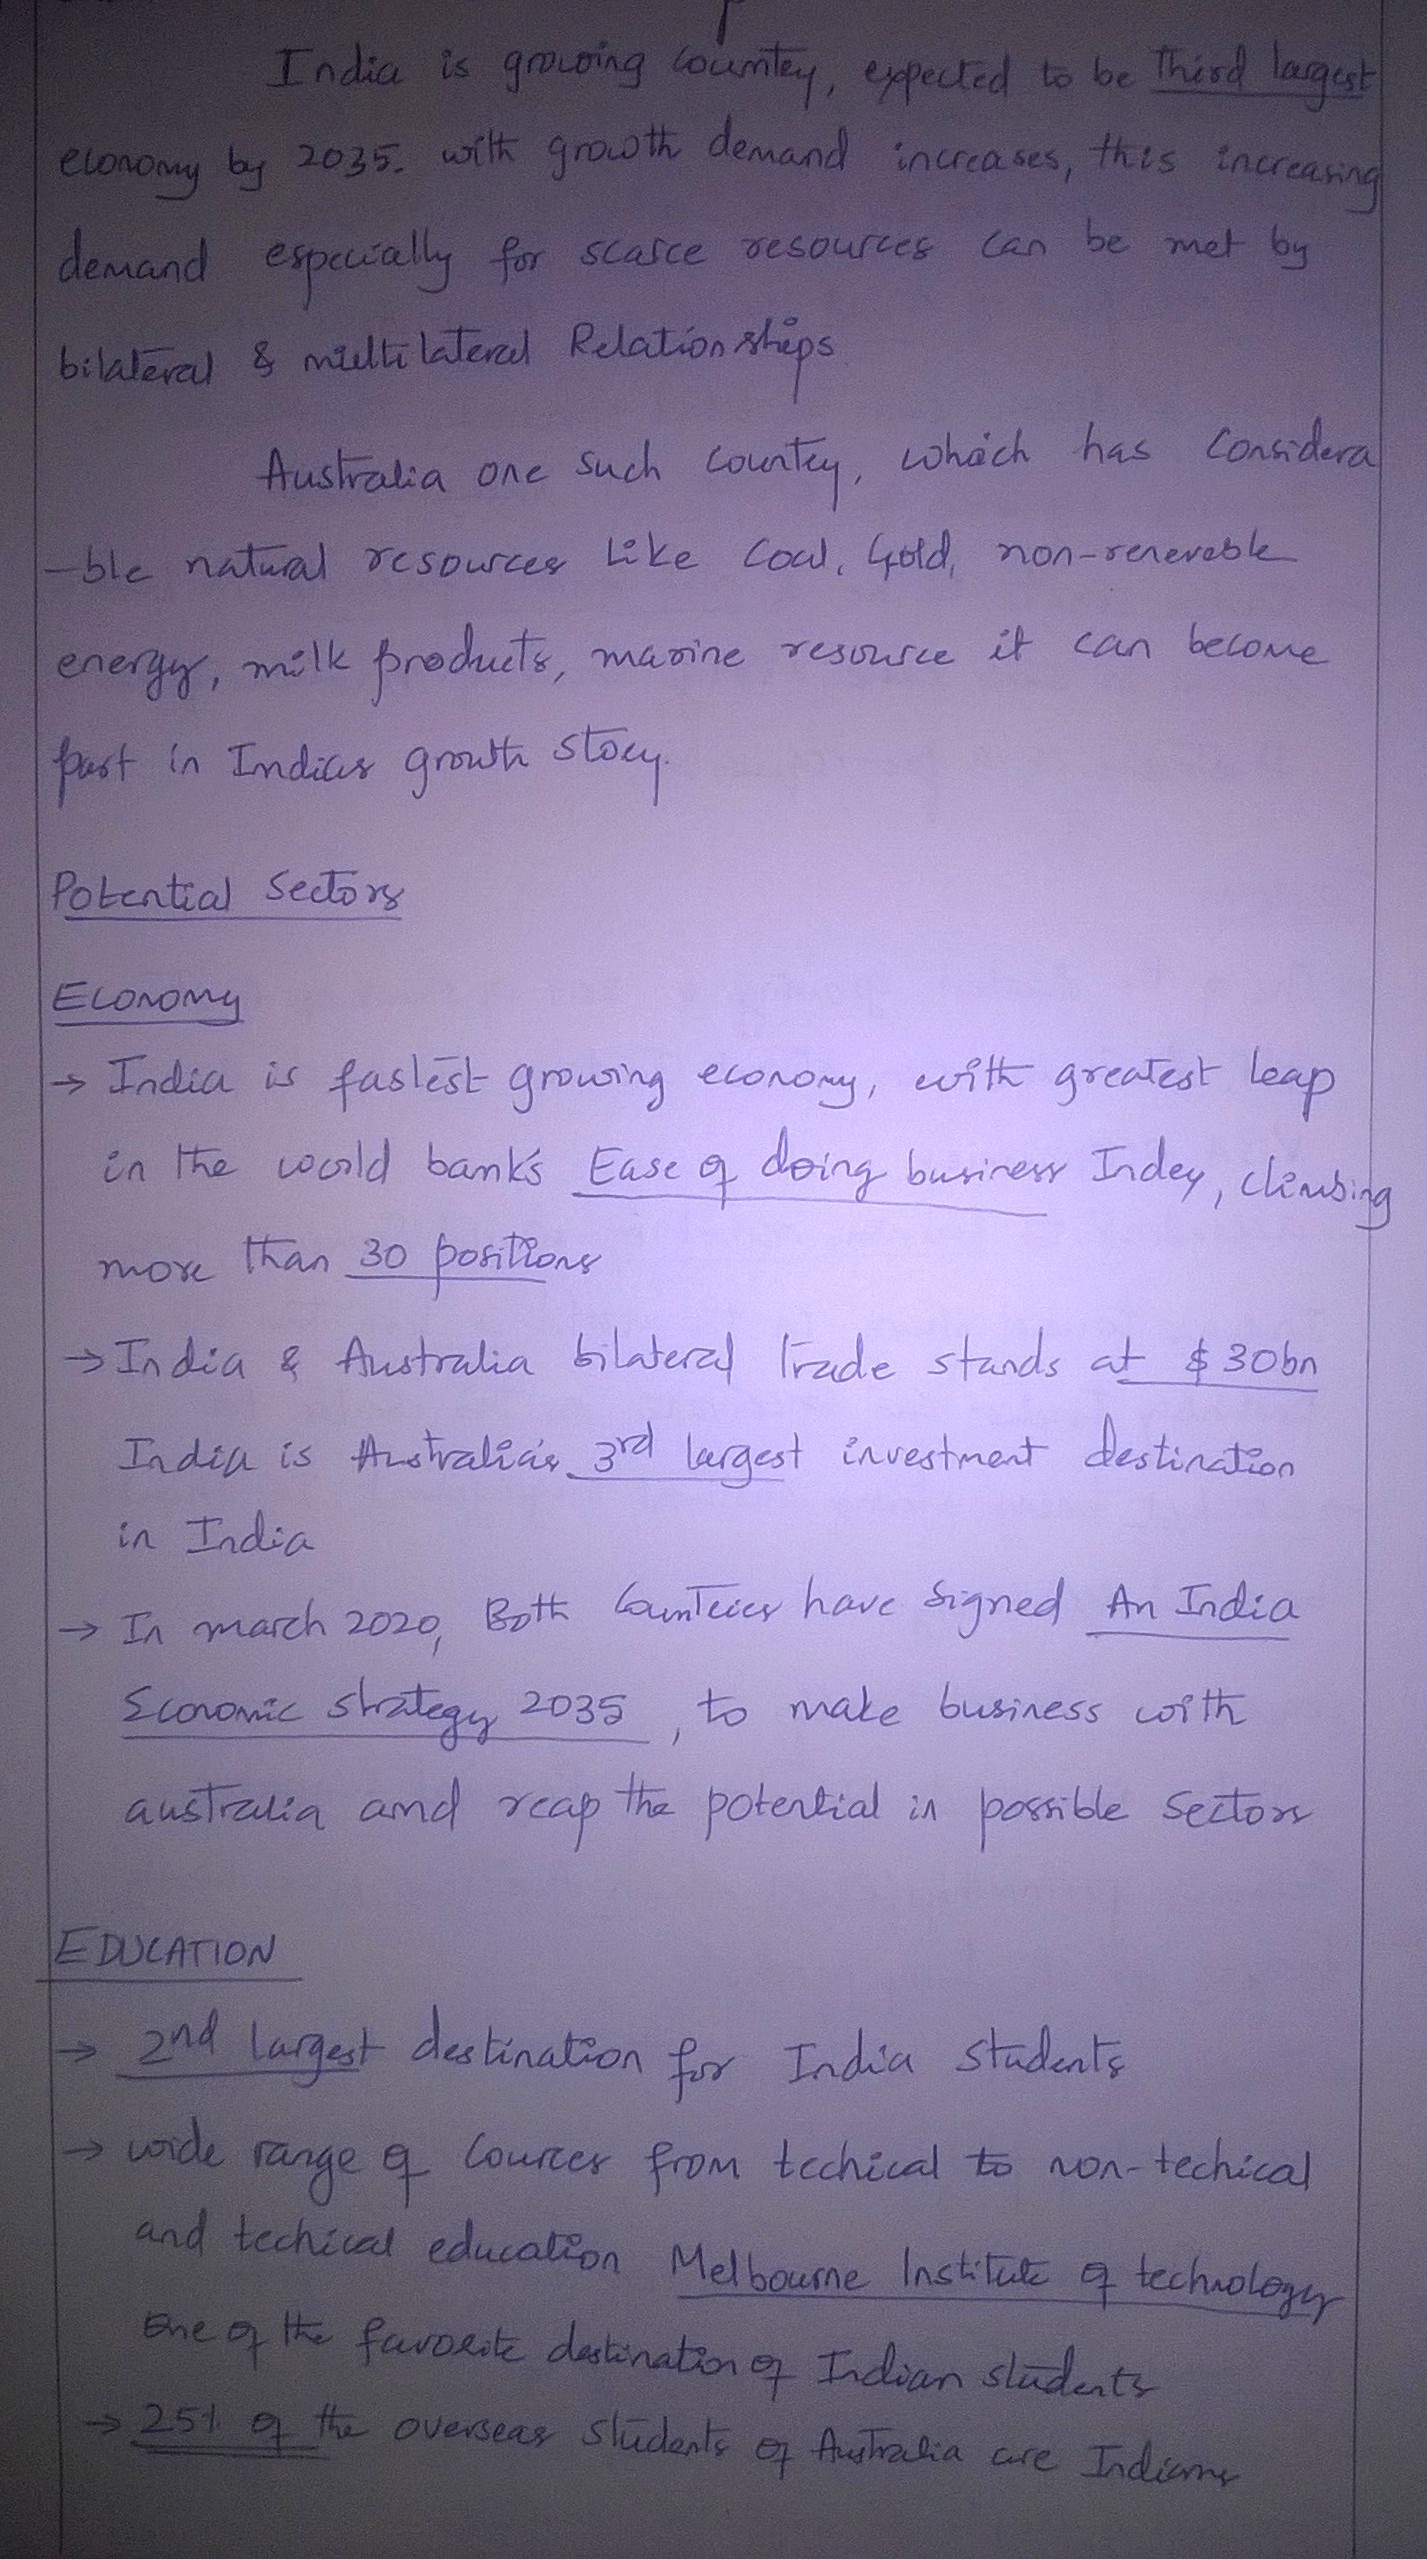 India is growing country, expected to be Third largest
economy by 2035. with growth demand increases, this increasing
demand especially for scarce resources can be met by
bilateral & multilateral Relationships
Australia one such country, which has Considera
-ble natural resources Like Coal, Gold, non-renevable
energy, milk products, marine resource it can become
part in Indias growth story.
Potential Sectors
Economy
→ India is fastest growing economy, with greatest leap
in the world bank's Ease of doing business Index, climbing
more than 30 positions
→ India & Australia bilateral Trade stands at $30bn
India is Australia's 3rd largest investment destination
in India
→ In march 2020, Both Countries have signed An India
Economic Strategy 2035, to make business with
australia and reap the potential in possible Sectors
EDUCATION
→ 2nd largest destination for India Students
→ wide range of Cources from techical to non-techical
and techical education Melbourne Institute of technology
One of the favorite destination of Indian students
→ 25% of the overseas Students of Australia are Indians